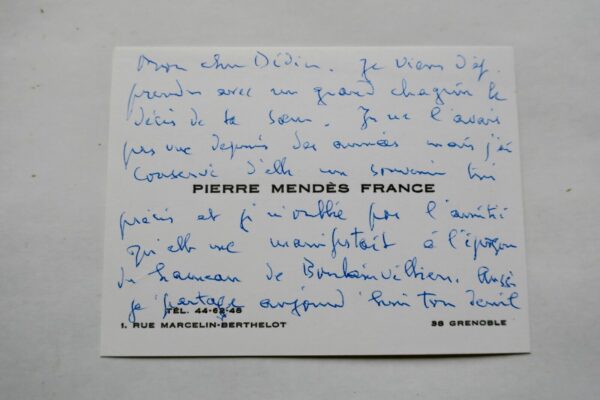 Mon cher Didier. Je viens d'ap
prendre avec un grand chagrin le
décès de ta sœur. Je ne l'avais
pas vue depuis des années mais j'ai
conservé d'elle un souvenir très
PIERRE MENDÈS FRANCE
précis et je n'oublie pas l'amitié
qu'elle me manifestait à l'époque
du hameau de Boulainvilliers. Aussi
je partage aujourd'hui ton deuil
TÉL. 44-62-45
1. RUE MARCELIN-BERTHELOT 38 GRENOBLE